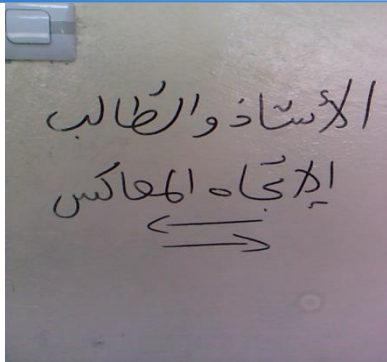 الأستاذ والطالب
الإتجاه المعاكس